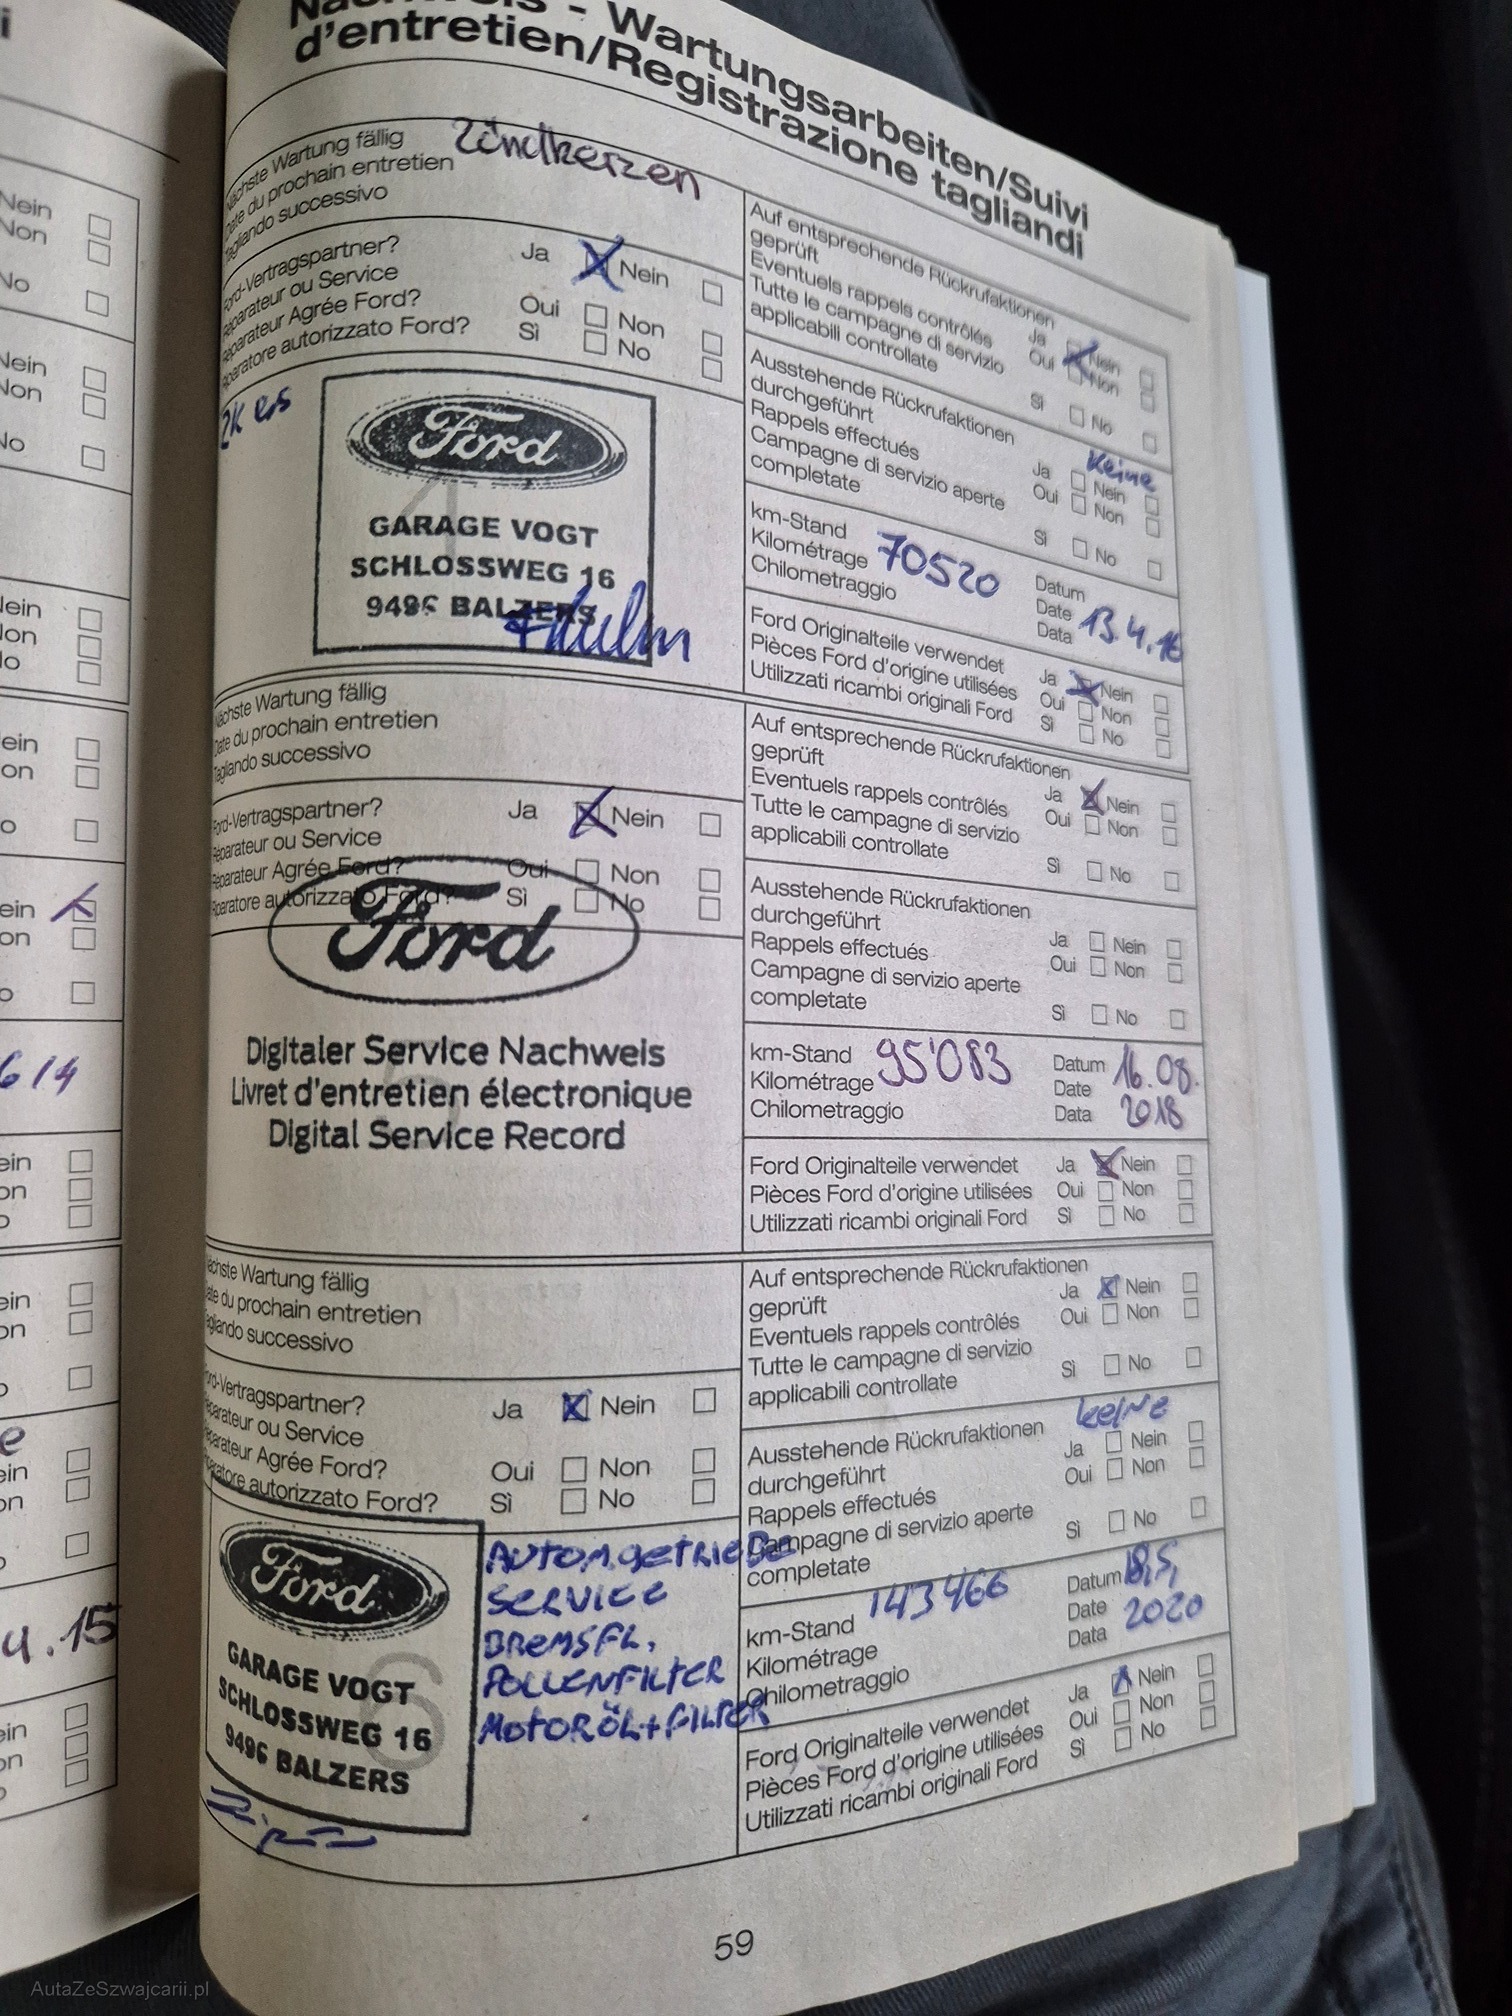 Nachweis - Wartungsarbeiten/Suivi
d'entretien/Registrazione tagliandi
Nächste Wartung fällig
Date du prochain entretien
Tagliando successivo
Zündkerzen
Ford-Vertragspartner?
Réparateur ou Service
Réparateur Agrée Ford?
Riparatore autorizzato Ford?
Ja Nein
Oui Non
Sì No
Ford
GARAGE VOGT
SCHLOSSWEG 16
9496 BALZERS
4
Auf entsprechende Rückrufaktionen
geprüft
Eventuels rappels contrôlés
Tutte le campagne di servizio
applicabili controllate
Ja Nein
Oui Non
Sì No
Ausstehende Rückrufaktionen
durchgeführt
Rappels effectués
Campagne di servizio aperte
completate
keine
Ja Nein
Oui Non
Sì No
km-Stand
Kilométrage
Chilometraggio
70520
Datum
Date
Data
13.4.16
Ford Originalteile verwendet
Pièces Ford d'origine utilisées
Utilizzati ricambi originali Ford
Ja Nein
Oui Non
Sì No
Nächste Wartung fällig
Date du prochain entretien
Tagliando successivo
Ford-Vertragspartner?
Réparateur ou Service
Réparateur Agrée Ford?
Riparatore autorizzato Ford?
Ja Nein
Oui Non
Sì No
Ford
Digitaler Service Nachweis
Livret d'entretien électronique
Digital Service Record
Auf entsprechende Rückrufaktionen
geprüft
Eventuels rappels contrôlés
Tutte le campagne di servizio
applicabili controllate
Ja Nein
Oui Non
Sì No
Ausstehende Rückrufaktionen
durchgeführt
Rappels effectués
Campagne di servizio aperte
completate
Ja Nein
Oui Non
Sì No
km-Stand
Kilométrage
Chilometraggio
95'083
Datum
Date
Data
16.08.
2018
Ford Originalteile verwendet
Pièces Ford d'origine utilisées
Utilizzati ricambi originali Ford
Ja Nein
Oui Non
Sì No
Nächste Wartung fällig
Date du prochain entretien
Tagliando successivo
Ford-Vertragspartner?
Réparateur ou Service
Réparateur Agrée Ford?
Riparatore autorizzato Ford?
Ja Nein
Oui Non
Sì No
Ford
GARAGE VOGT
SCHLOSSWEG 16
9496 BALZERS
6
AUTOM.GETRIEBE
SERVICE
BREMSFL,
POLLENFILTER
MOTORÖL+FILTER
Auf entsprechende Rückrufaktionen
geprüft
Eventuels rappels contrôlés
Tutte le campagne di servizio
applicabili controllate
Ja Nein
Oui Non
Sì No
Ausstehende Rückrufaktionen
durchgeführt
Rappels effectués
Campagne di servizio aperte
completate
keine
Ja Nein
Oui Non
Sì No
km-Stand
Kilométrage
Chilometraggio
143466
Datum
Date
Data
18,5,
2020
Ford Originalteile verwendet
Pièces Ford d'origine utilisées
Utilizzati ricambi originali Ford
Ja Nein
Oui Non
Sì No
59
AutaZeSzwajcarii.pl